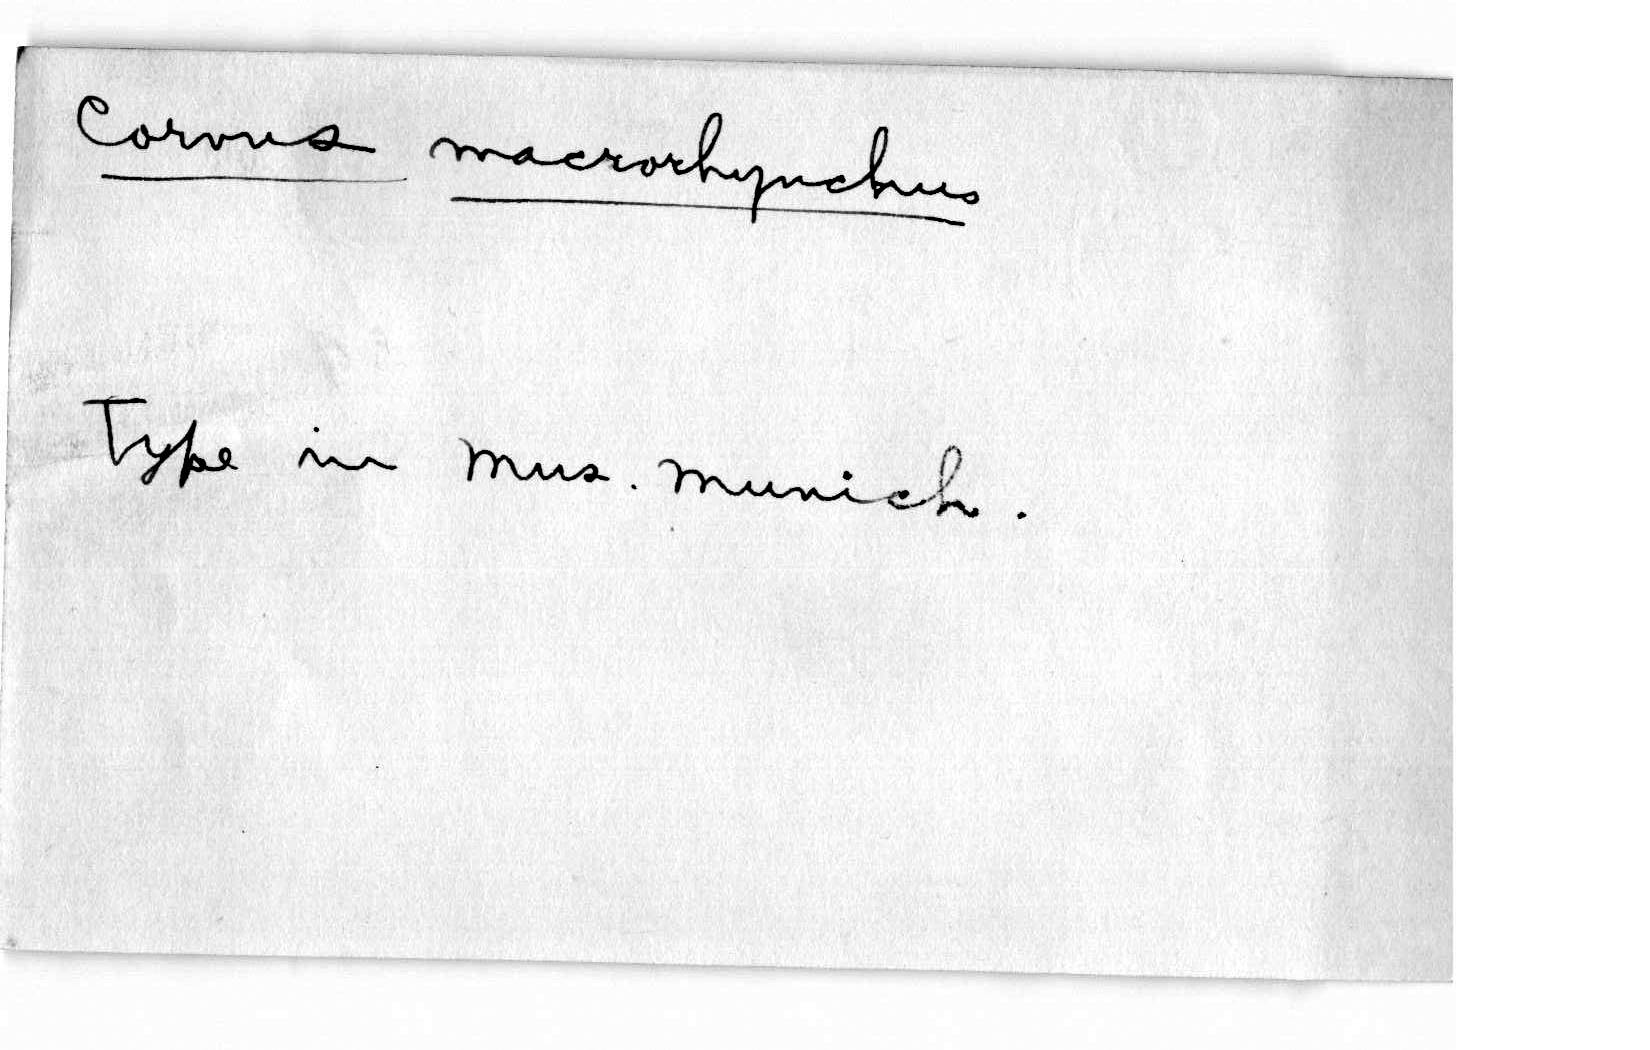 Corvus macrorhynchus
Type in Mus. Munich.